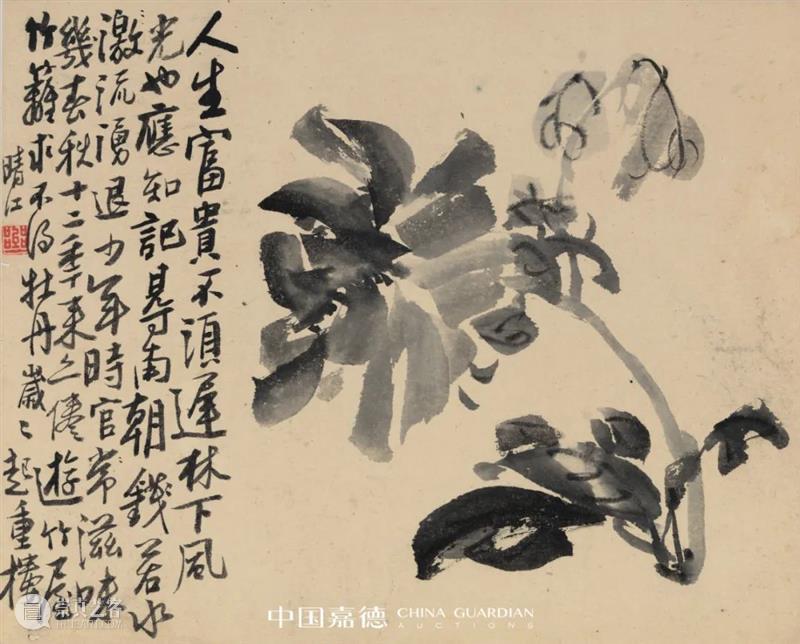 人生富貴不須遲林下風
光也應知記尋南朝錢若水
激流湧退少年時官常滋味
幾春秋十二年來亦倦遊竹屋
竹籬求不得牡丹歲〻起重樓
晴江
中国嘉德 CHINA GUARDIAN
AUCTIONS
崇真艺客